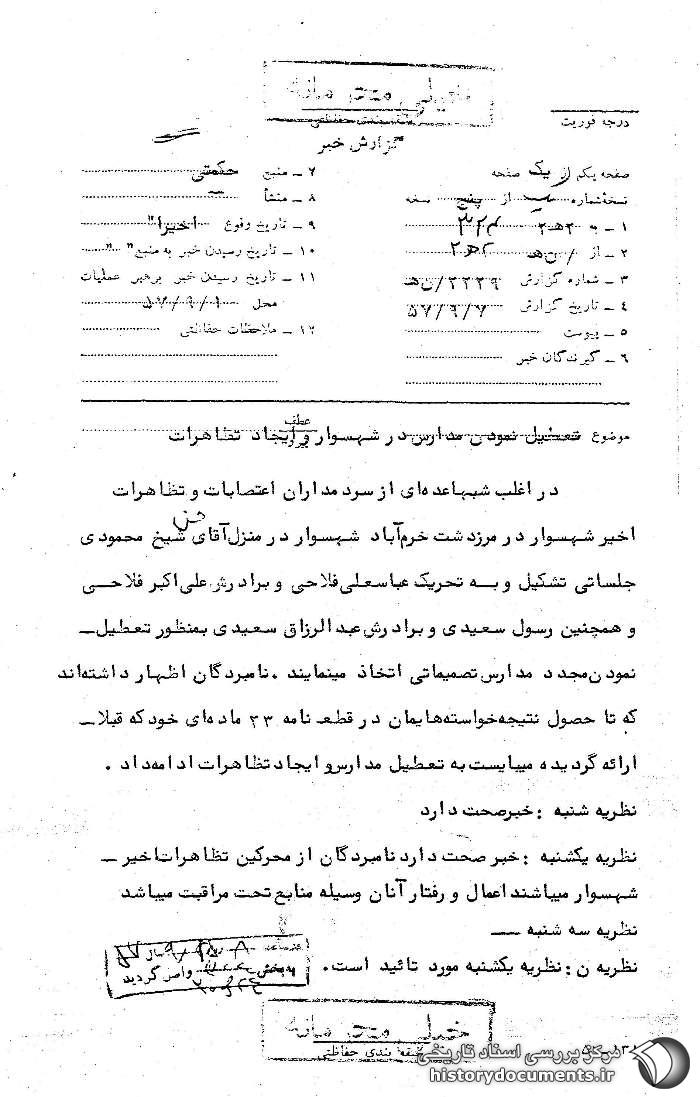 خیلی محرمانه
طبقه بندی حفاظتی
درجه فوریت
گزارش خبر
صفحه یکم از یک صفحه
نسخه شماره از پنج نسخه
۱ - به ۲ هـ ۳۲۴
۲ - از / ن هـ ۲ هـ ۲
۳ - شماره گزارش ۲۲۲۹/ن هـ
۴ - تاریخ گزارش ۵۷/۹/۷
۵ - پیوست
۶ - گیرندگان خبر
۷ - منبع حکمتی
۸ - منشأ —
۹ - تاریخ وقوع "اخیرا"
۱۰ - تاریخ رسیدن خبر به منبع " "
۱۱ - تاریخ رسیدن خبر برهبر عملیات
محل ۵۷/۹/۱
۱۲ - ملاحظات حفاظتی
عطف
موضوع تعطیل نمودن مدارس در شهسوار و ایجاد تظاهرات
در اغلب شبها عده‌ای از سردمداران اعتصابات و تظاهرات
اخیر شهسوار در مرزدشت خرم‌آباد شهسوار در منزل آقای شیخ حسن محمودی
جلساتی تشکیل و به تحریک عباسعلی فلاحی و برادرش علی اکبر فلاحی
و همچنین رسول سعیدی و برادرش عبدالرزاق سعیدی بمنظور تعطیل -
نمودن مجدد مدارس تصمیماتی اتخاذ مینمایند . نامبردگان اظهار داشته‌اند
که تا حصول نتیجه خواسته‌هایمان در قطعنامه ۲۳ ماده‌ای خود که قبلا -
ارائه گردیده میبایست به تعطیل مدارس و ایجاد تظاهرات ادامه داد .
نظریه شنبه : خبر صحت دارد
نظریه یکشنبه : خبر صحت دارد نامبردگان از محرکین تظاهرات اخیر -
شهسوار میباشند اعمال و رفتار آنان وسیله منابع تحت مراقبت میباشد
نظریه سه شنبه —
نظریه ن : نظریه یکشنبه مورد تائید است .
به بخش واصل گردید
خیلی محرمانه
طبقه بندی حفاظتی
مرکز بررسی اسناد تاریخی
historydocuments.ir